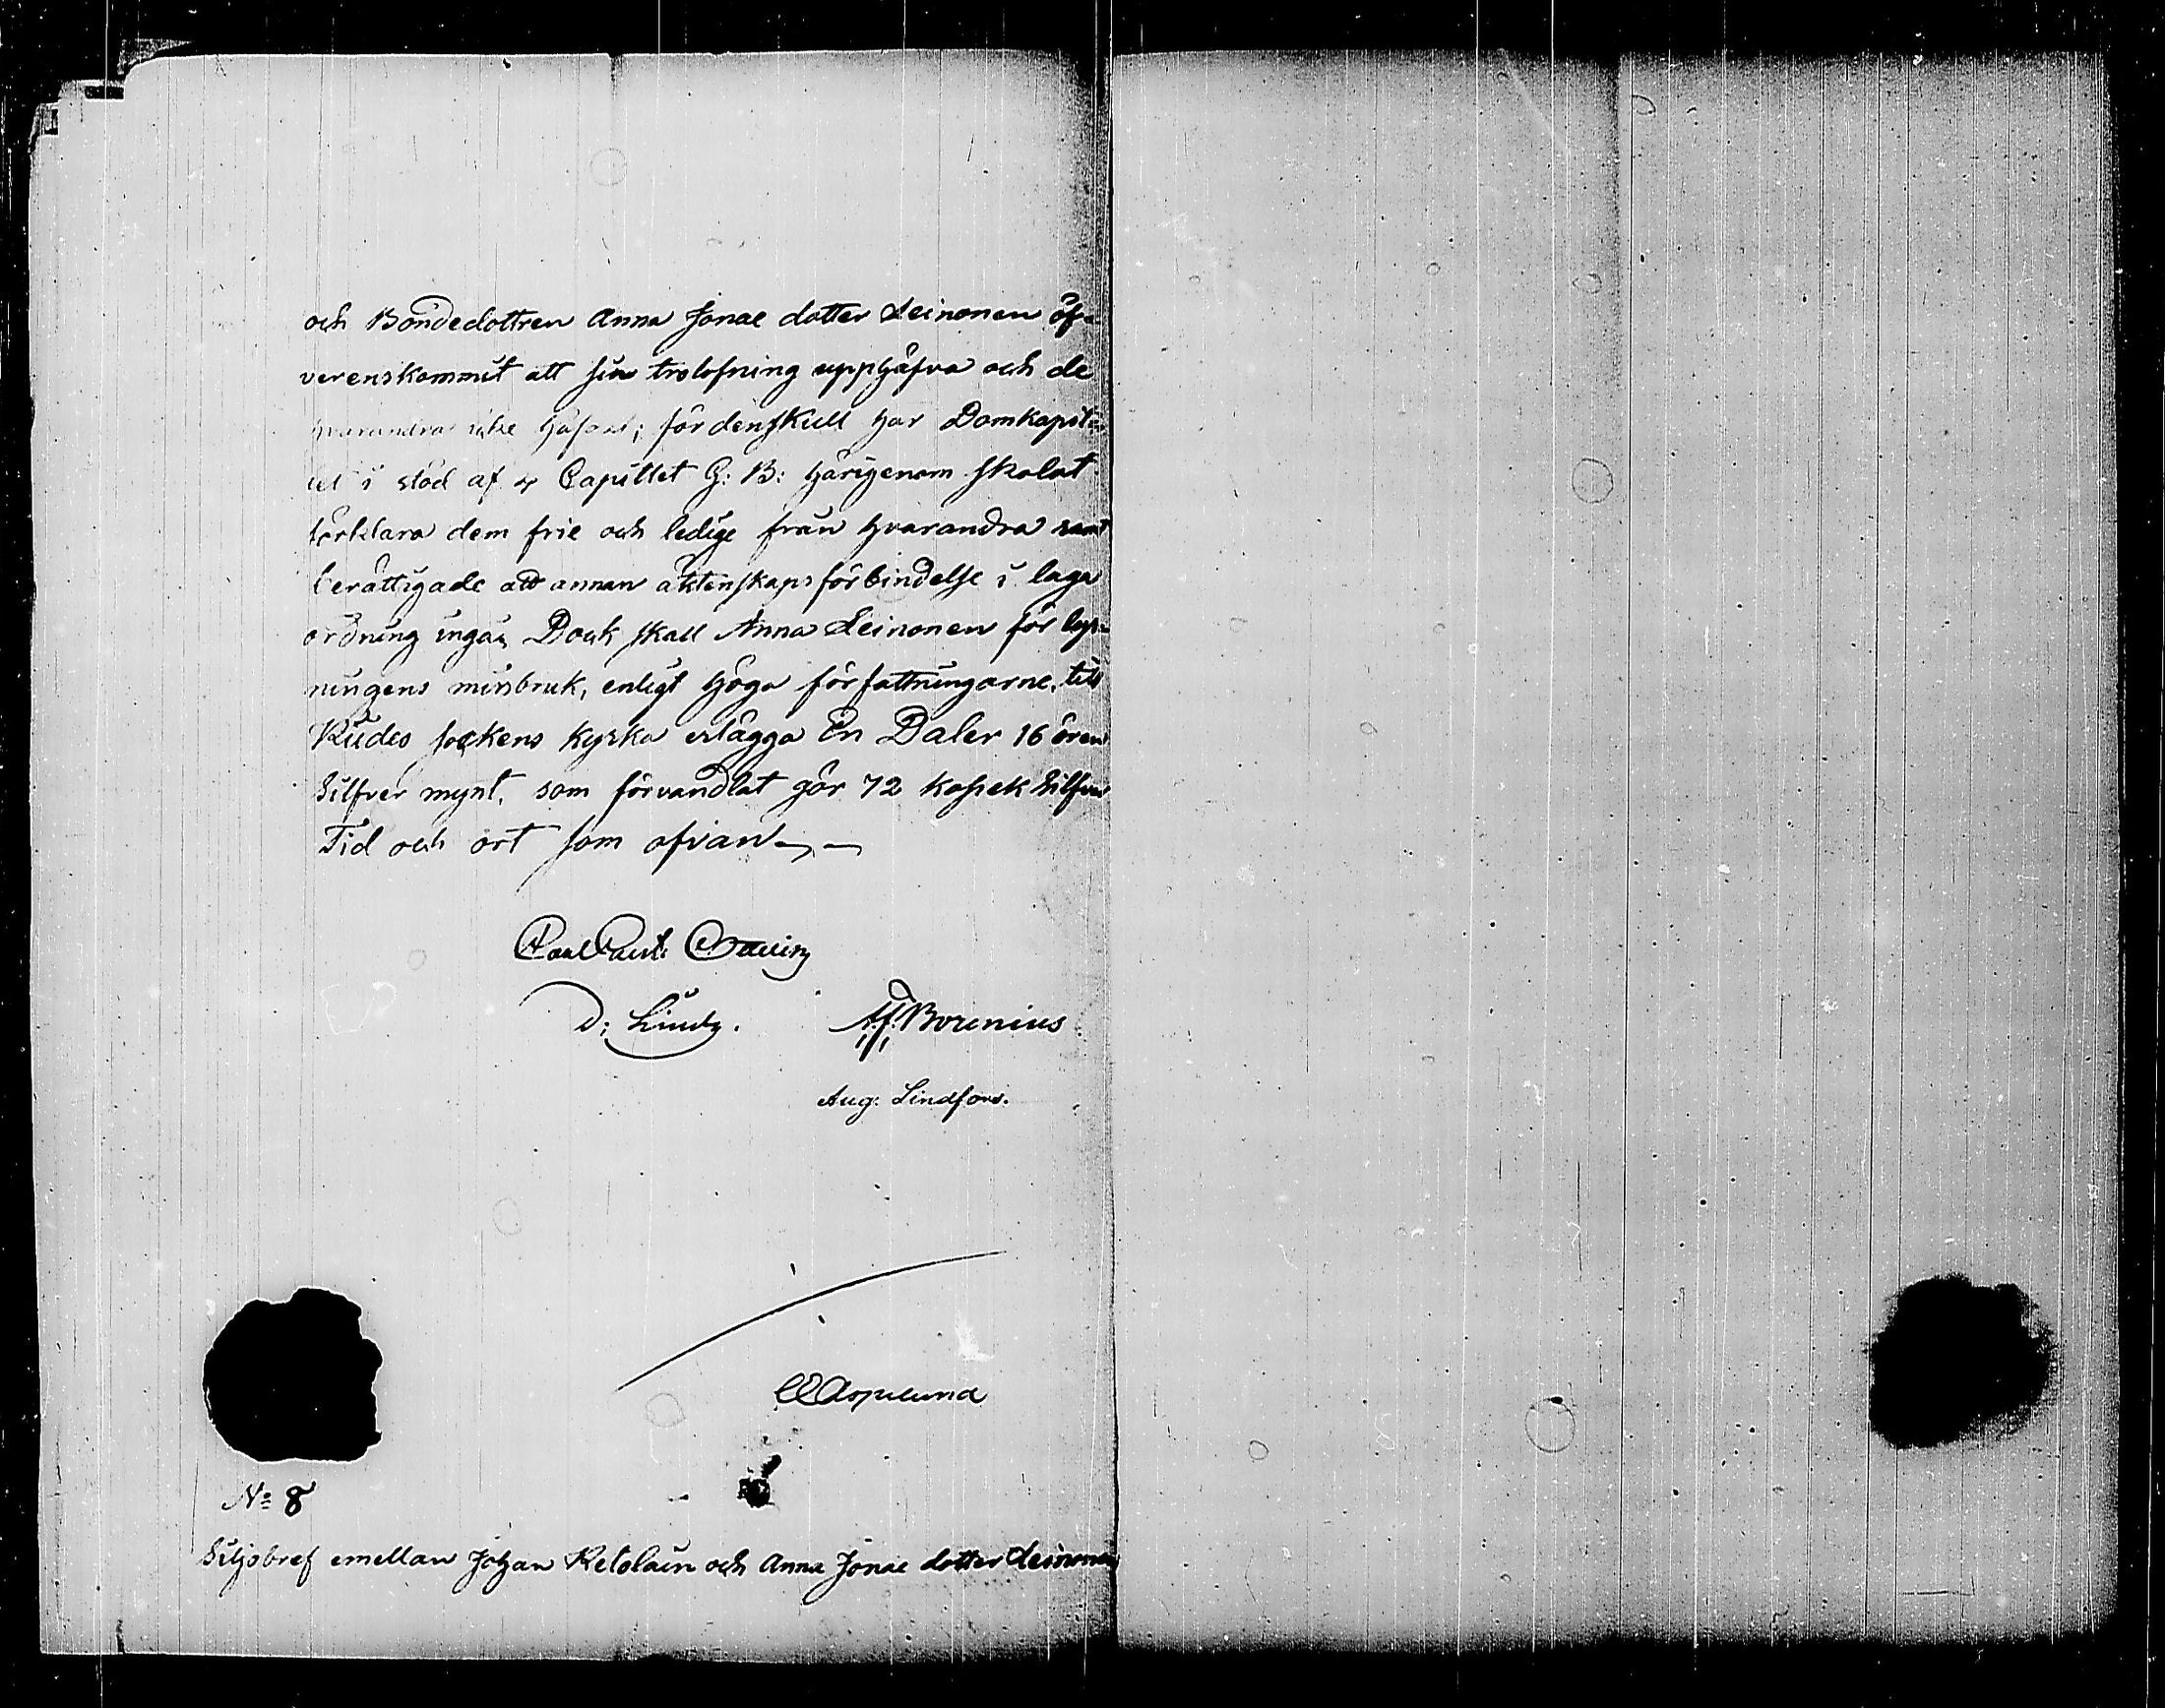 och Bondedottren Anna Jonae dotter Leinonen öf-
verenskommit att sin trolofning upphäfva och de
hvarandra icke häfdat; fördenskull har Domkapit-
let i stöd af 4 Capittlet G: B: härigenom skolat
förklara dem frie och ledige från hvarandra samt
berättigade att annan äktenskapsförbindelse i laga
ordning ingå, Dock skall Anna Leinonen för lys-
ningens missbruk, enligt höga författningarne, till
Kides sockens kyrka erlägga En Daler 16 ören
Silfver mynt, som förvandlat gör 72 kopek Silfver
Tid och ort som ofvan
D: Lindh.
Borenius
Aug: Lindfors.
CEAspelund
No 8
Skiljobref emellan Johan Ketolain och Anna Jonae dotter Leinonen